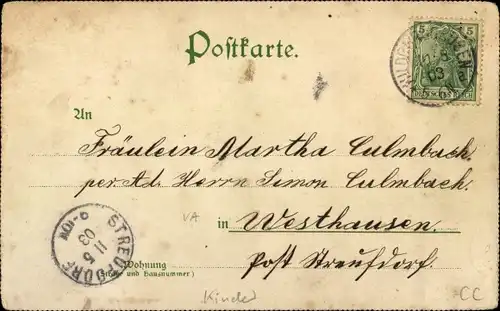 Postkarte.
5 5
03
An
Fräulein Martha Culmbach.
per. Ad. Herrn Simon Culmbach.
VA
in Westhausen.
Wohnung
(Straße und Hausnummer)
Post Streufdorf.
STREUFDORF
11 5
03
Kinder
CC